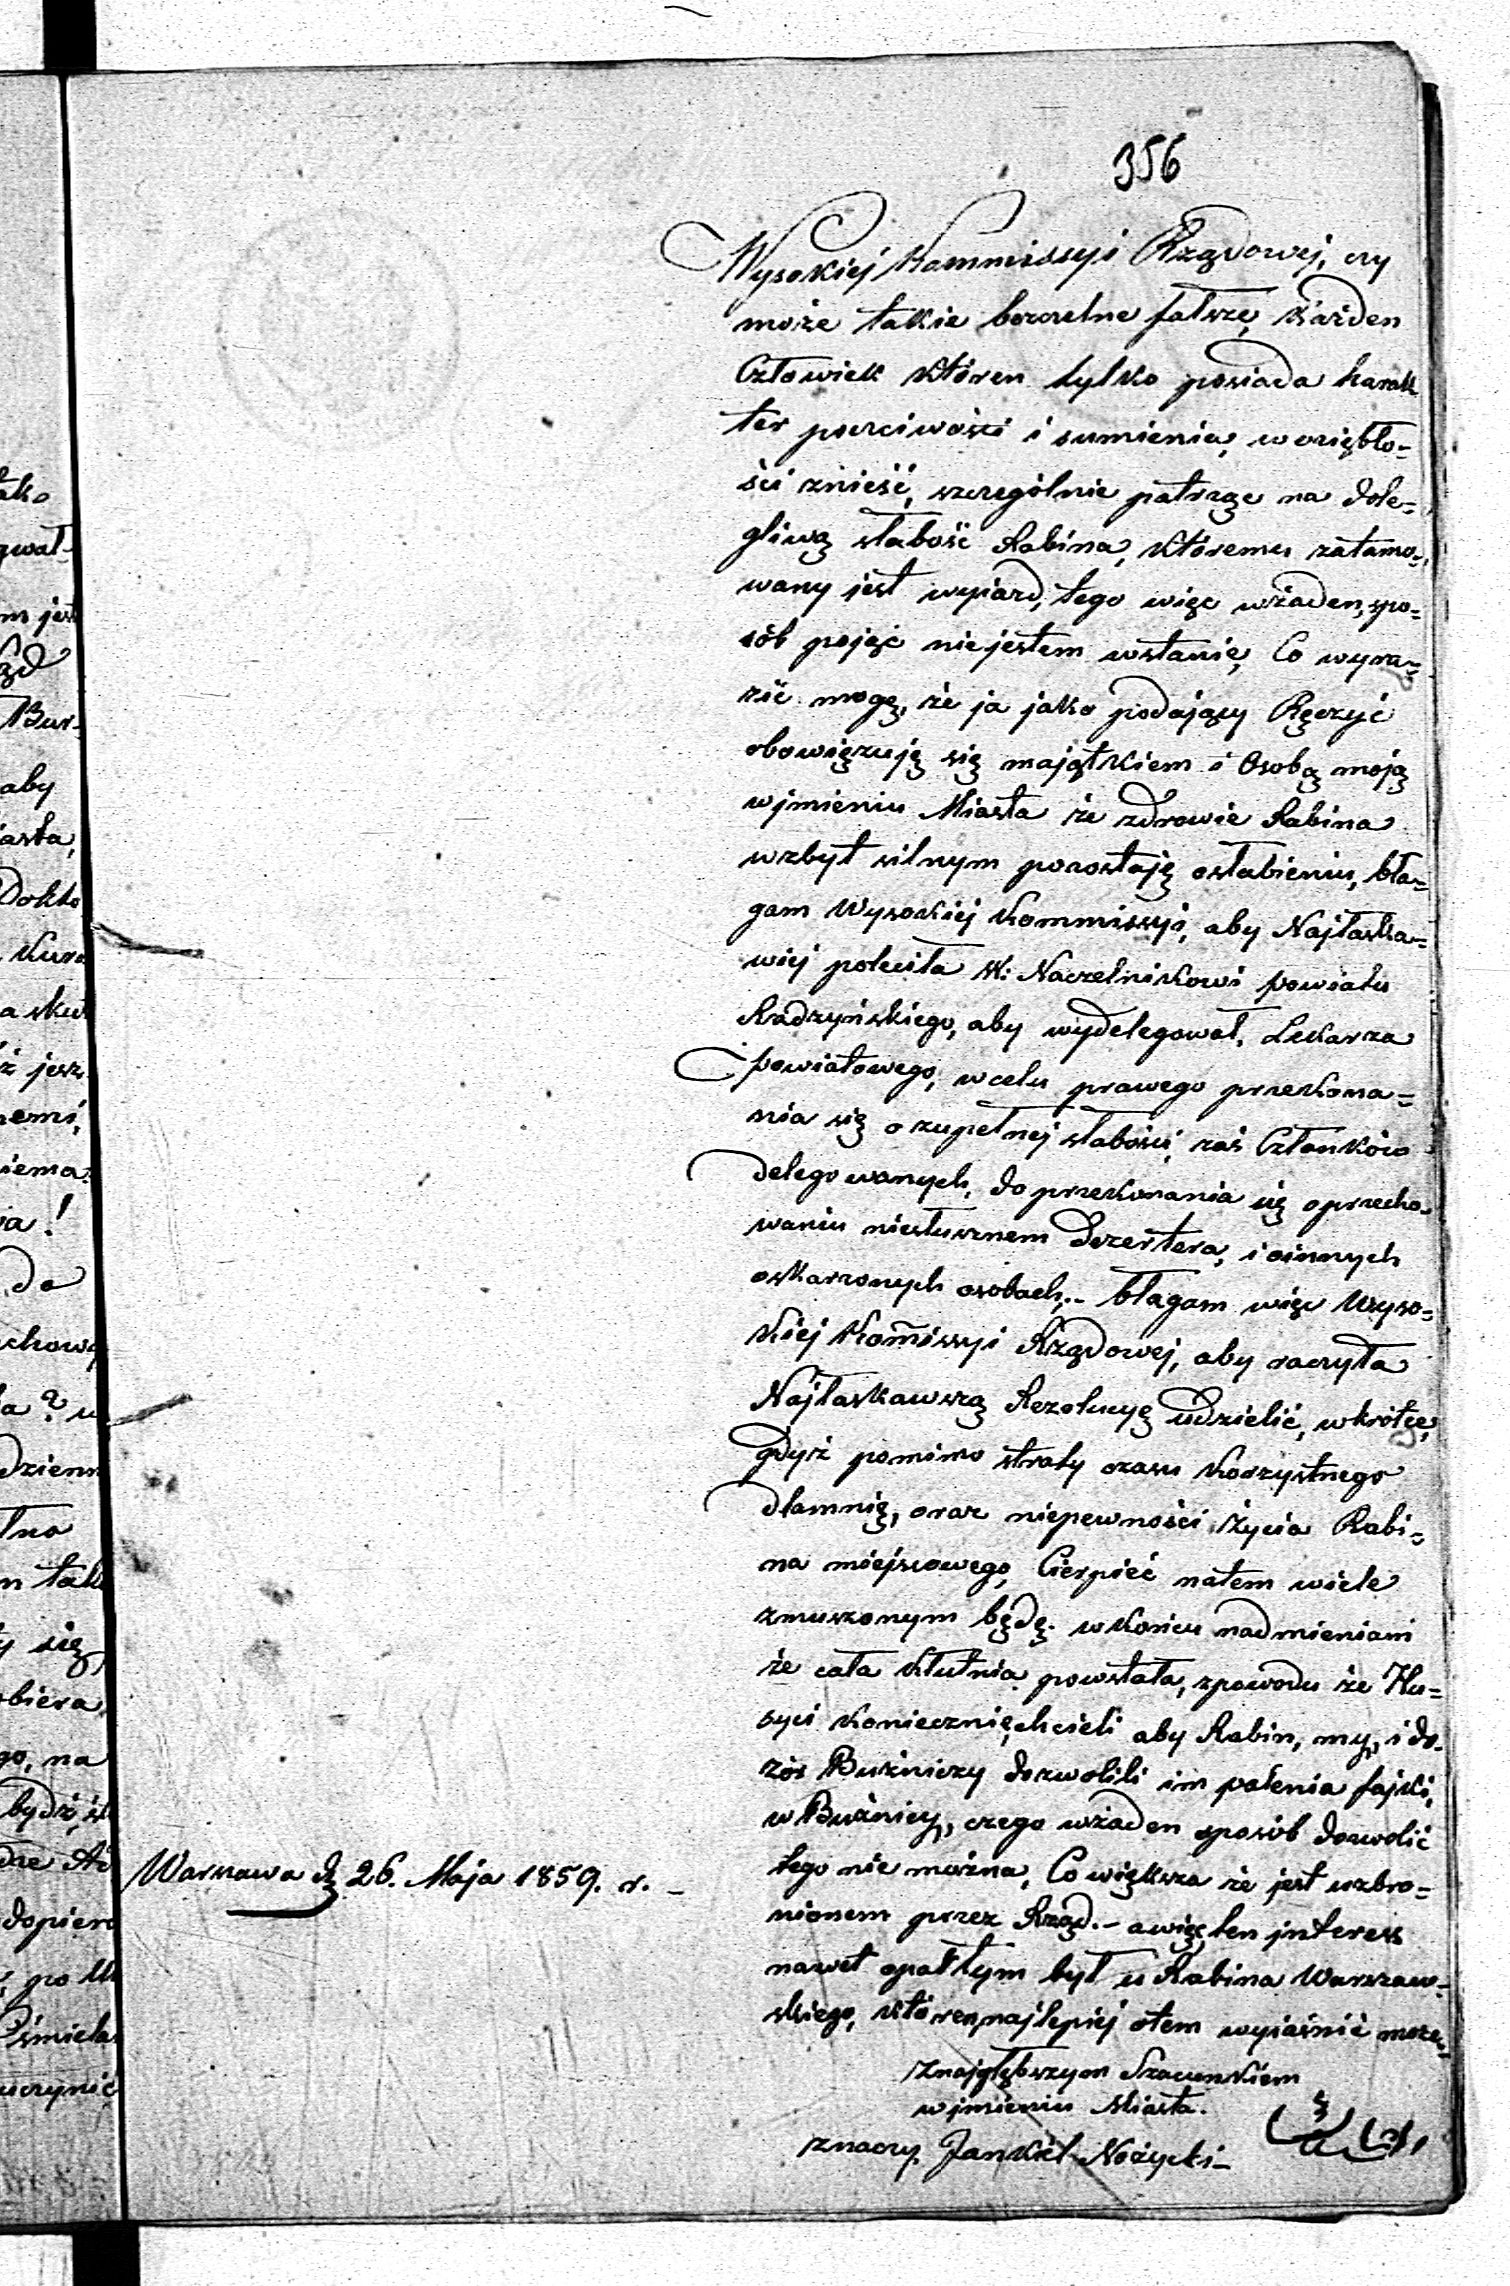 356
Wysokiej Kommissyi Rządowej, czy
może takie bezczelne fałsze, każden
Człowiek któren tylko posiada karak
ter poczciwości i sumienia, w oziębło=
ści znieść, szczególnie patrząc na dole=
gliwą słabość Rabina, któremu zatamo=
wany jest wyiazd, tego więc wżaden, spo=
sób pojąć niejestem wstanie, Co wyra=
zić mogę, że ja jako podający Ręczyć
obowięzuję się majątkiem i Osobą moją
wjmieniu Miasta że zdrowie Rabina
wzbyt silnym pozostaję osłabieniu, bła=
gam Wysokiej Kommissyi, aby Najłaska=
wiej poleciła W: Naczelnikowi powiatu
Radzyńskiego, aby wydelegował, Lekarza
powiatowego, wcelu prawego przekona=
nia się o zupełnej słabości, zaś Członków
delegowanych, do przekonania się oprzecho=
waniu niesłusznem Dezertera, i oinnych
oskarzonych osobach,.- błagam więc Wyso=
kiej Kom̃issyi Rządowej, aby raczyła
Najłaskawszą Rezolucyę udzielić, wkrótce,
gdyż pomimo straty czasu korzystnego
dlamnię, oraz niepewności życia Rabi=
na miejscowego, Cierpieć natem wiele
zmuszonym będę. wkońcu nadmieniam
że cała kłutnia powstała, zpowodu że Hu=
syci konieczniechcieli aby Rabin, my, i do=
zór Bużniczy dozwolili im palenia fajki,
w Bużnicy, czego wżaden sposób dozwolić
tego nie można, Co większa że jest wzbro=
nionem przez Rząd.- awięc ten jnteress
nawet opartym był u Rabina Warszaw=
skiego, któren, najlepiej otem wyiaśnić może,
Znajgłębszym Szacunkiem
wjmieniu Miasta.
znaczy Jankiel Nożycki-
Warszawa d. 26. Maja 1859. r. -